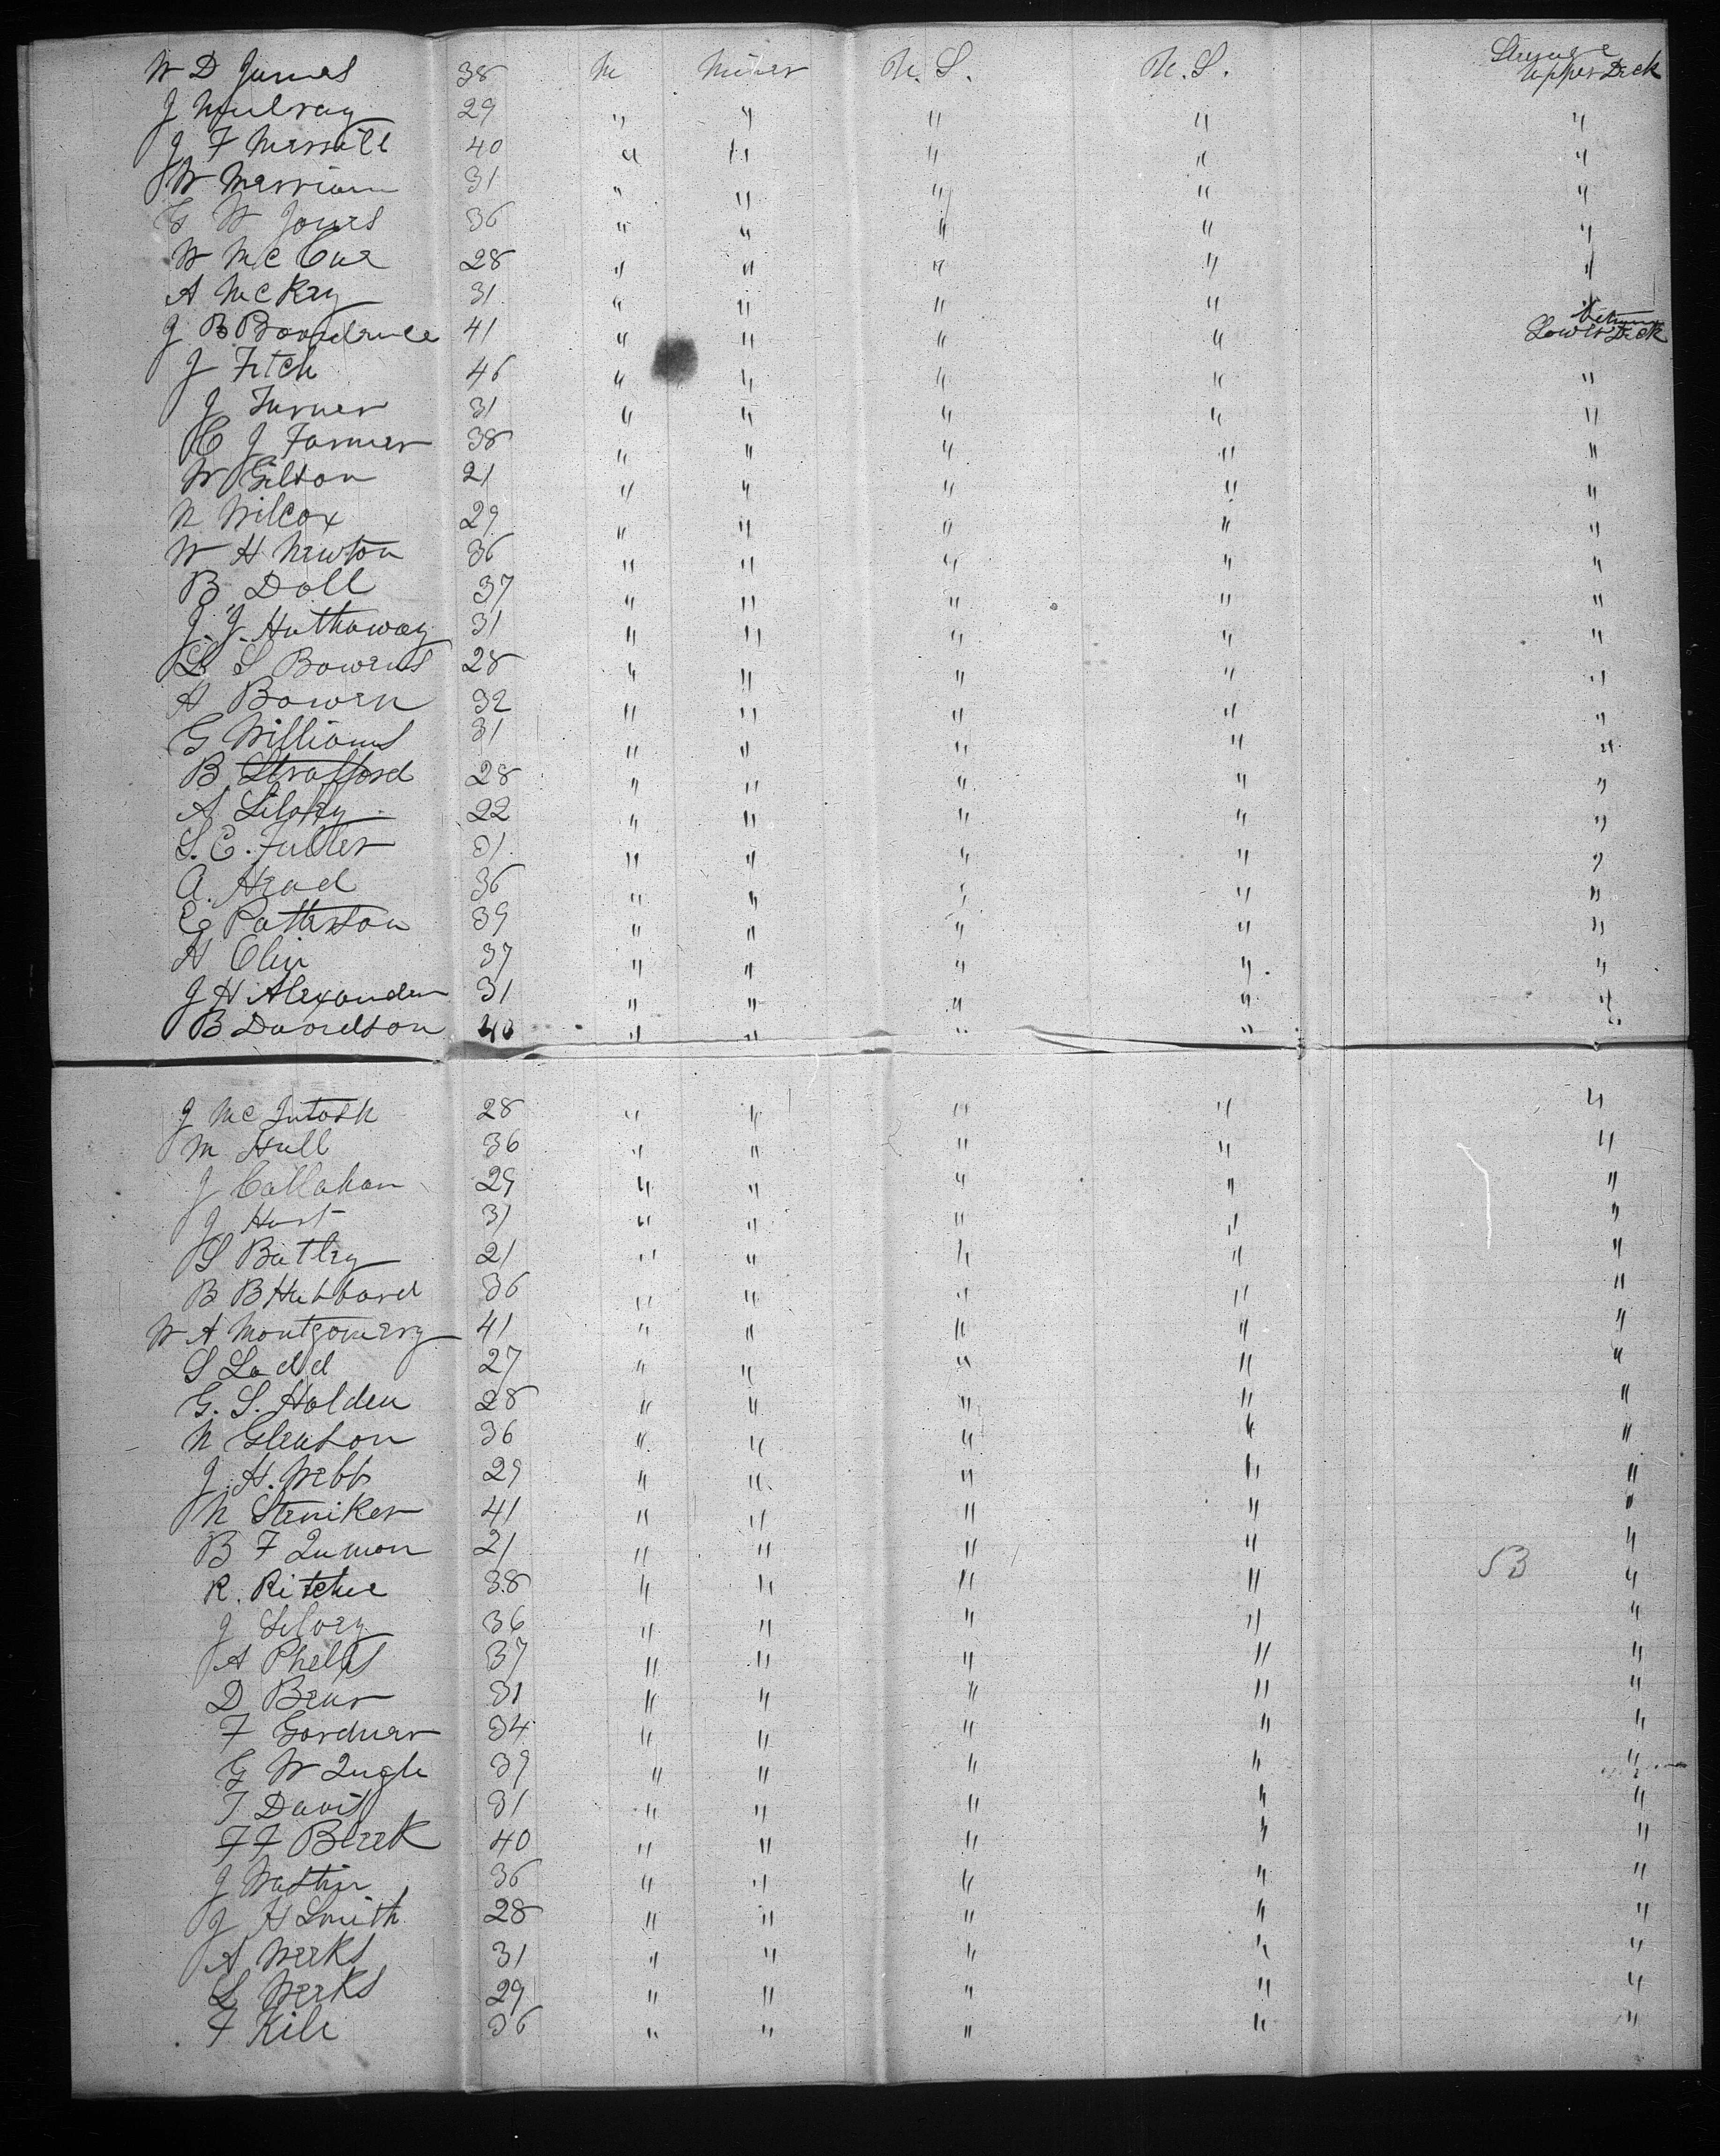 W D James 38 M Miner U.S. U.S. Steerage Upper Deck
J Mulvay 29 " " " " "
J F Merrill 40 " " " " "
W Merriam 31 " " " " "
G W Jones 36 " " " " "
W McCue 28 " " " " "
A McKey 31 " " " " "
J B 41 " " " " Lower Deck
J Fitch 46 " " " " "
J Turner 31 " " " " "
C J Farmer 38 " " " " "
W Gilson 21 " " " " "
N Wilcox 29 " " " " "
W H Newton 36 " " " " "
B Doll 37 " " " " "
J. J. Hathaway 31 " " " " "
L S Bowens 28 " " " " "
H Bowen 32 " " " " "
G Williams 31 " " " " "
B Strafford 28 " " " " "
A 22 " " " " "
S. E. Fuller 31 " " " " "
A. Head 36 " " " " "
E Patterson 39 " " " " "
H Olin 37 " " " " "
J H Alexander 31 " " " " "
B Davidson 40 " " " " "
J McIntosh 28 " " " " "
M Hull 36 " " " " "
J Callahan 29 " " " " "
J Hurst 31 " " " " "
S Batley 21 " " " " "
B B Hubbard 36 " " " " "
W A Montgomery 41 " " " " "
S Ladd 27 " " " " "
G. S. Holden 28 " " " " "
N Gleason 36 " " " " "
J. H. Webb 29 " " " " "
N Steniker 41 " " " " "
B F Inman 21 " " " " "
R. Ritchie 38 " " " " 53 "
J 36 " " " " "
A Phelps 37 " " " " "
D Bear 31 " " " " "
F Gardner 34 " " " " "
G W Ingle 39 " " " " "
T Davis 31 " " " " "
F F Bleek 40 " " " " "
J Wastin 36 " " " " "
J H Smith 28 " " " " "
A Weeks 31 " " " " "
L Weeks 29 " " " " "
F Kile 36 " " " " "